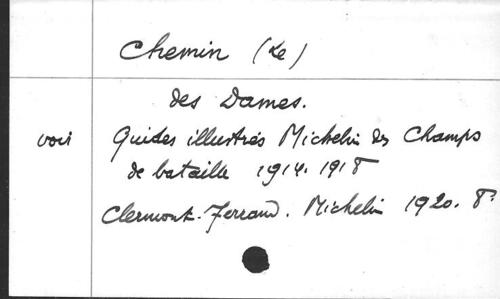 Chemin (Le)
des Dames.
voir Guides illustrés Michelin des Champs
de bataille 1914.1918
Clermont-Ferrand. Michelin 1920. 8°.